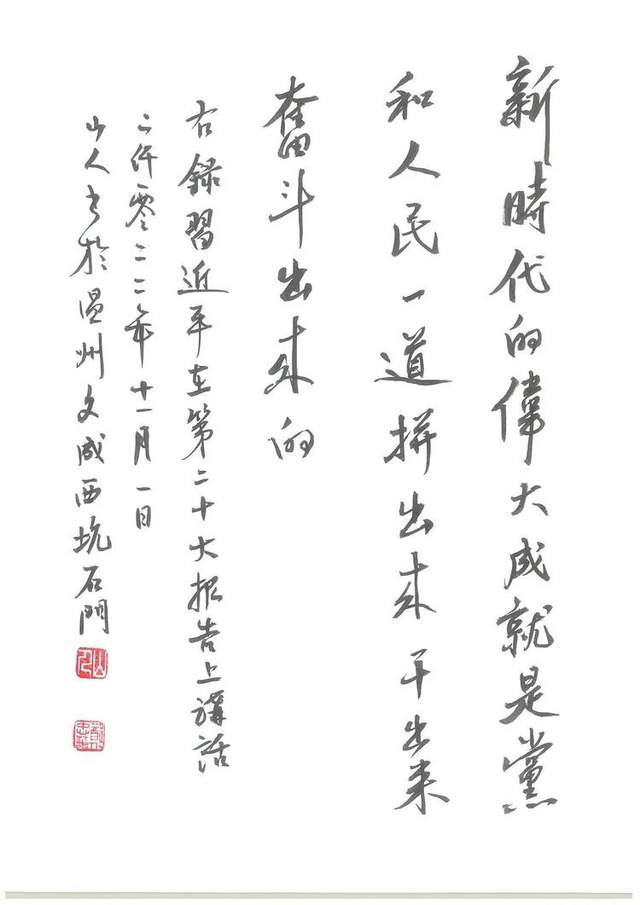 新時代的偉大成就是黨
和人民一道拼出来干出来
奮斗出来的
右録習近平在第二十大报告上講話
二仟零二二年十一月一日
山人书於温州文成西坑石門
山人